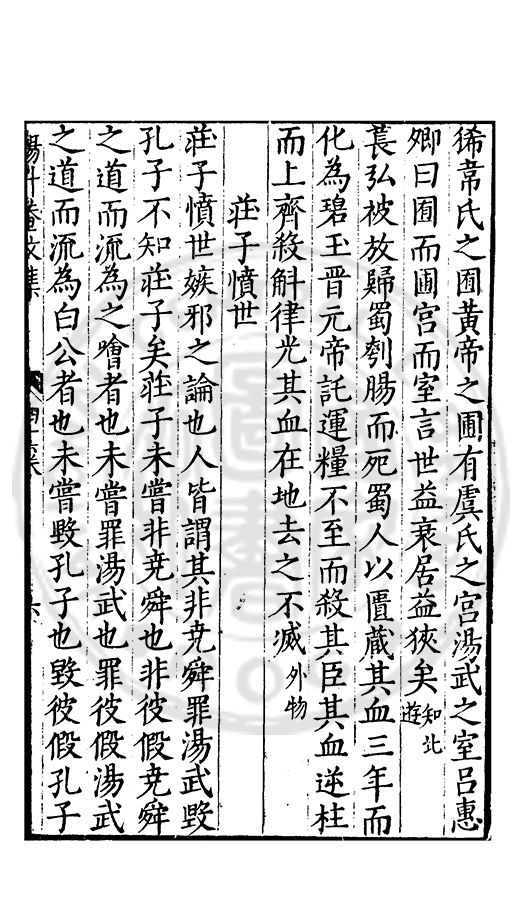 狶韋氏之囿黃帝之圃有虞氏之宮湯武之室呂惠
卿曰囿而圃宮而室言世益衰居益狹矣知北遊
萇弘被放歸蜀刳腸而死蜀人以匵藏其血三年而
化為碧玉晉元帝託運糧不至而殺其臣其血逆柱
而上齊殺斛律光其血在地去之不滅外物
莊子憤世
莊子憤世嫉邪之論也人皆謂其非堯舜罪湯武毀
孔子不知莊子矣莊子未嘗非堯舜也非彼假堯舜
之道而流為之噲者也未嘗罪湯武也罪彼假湯武
之道而流為白公者也未嘗毀孔子也毀彼假孔子